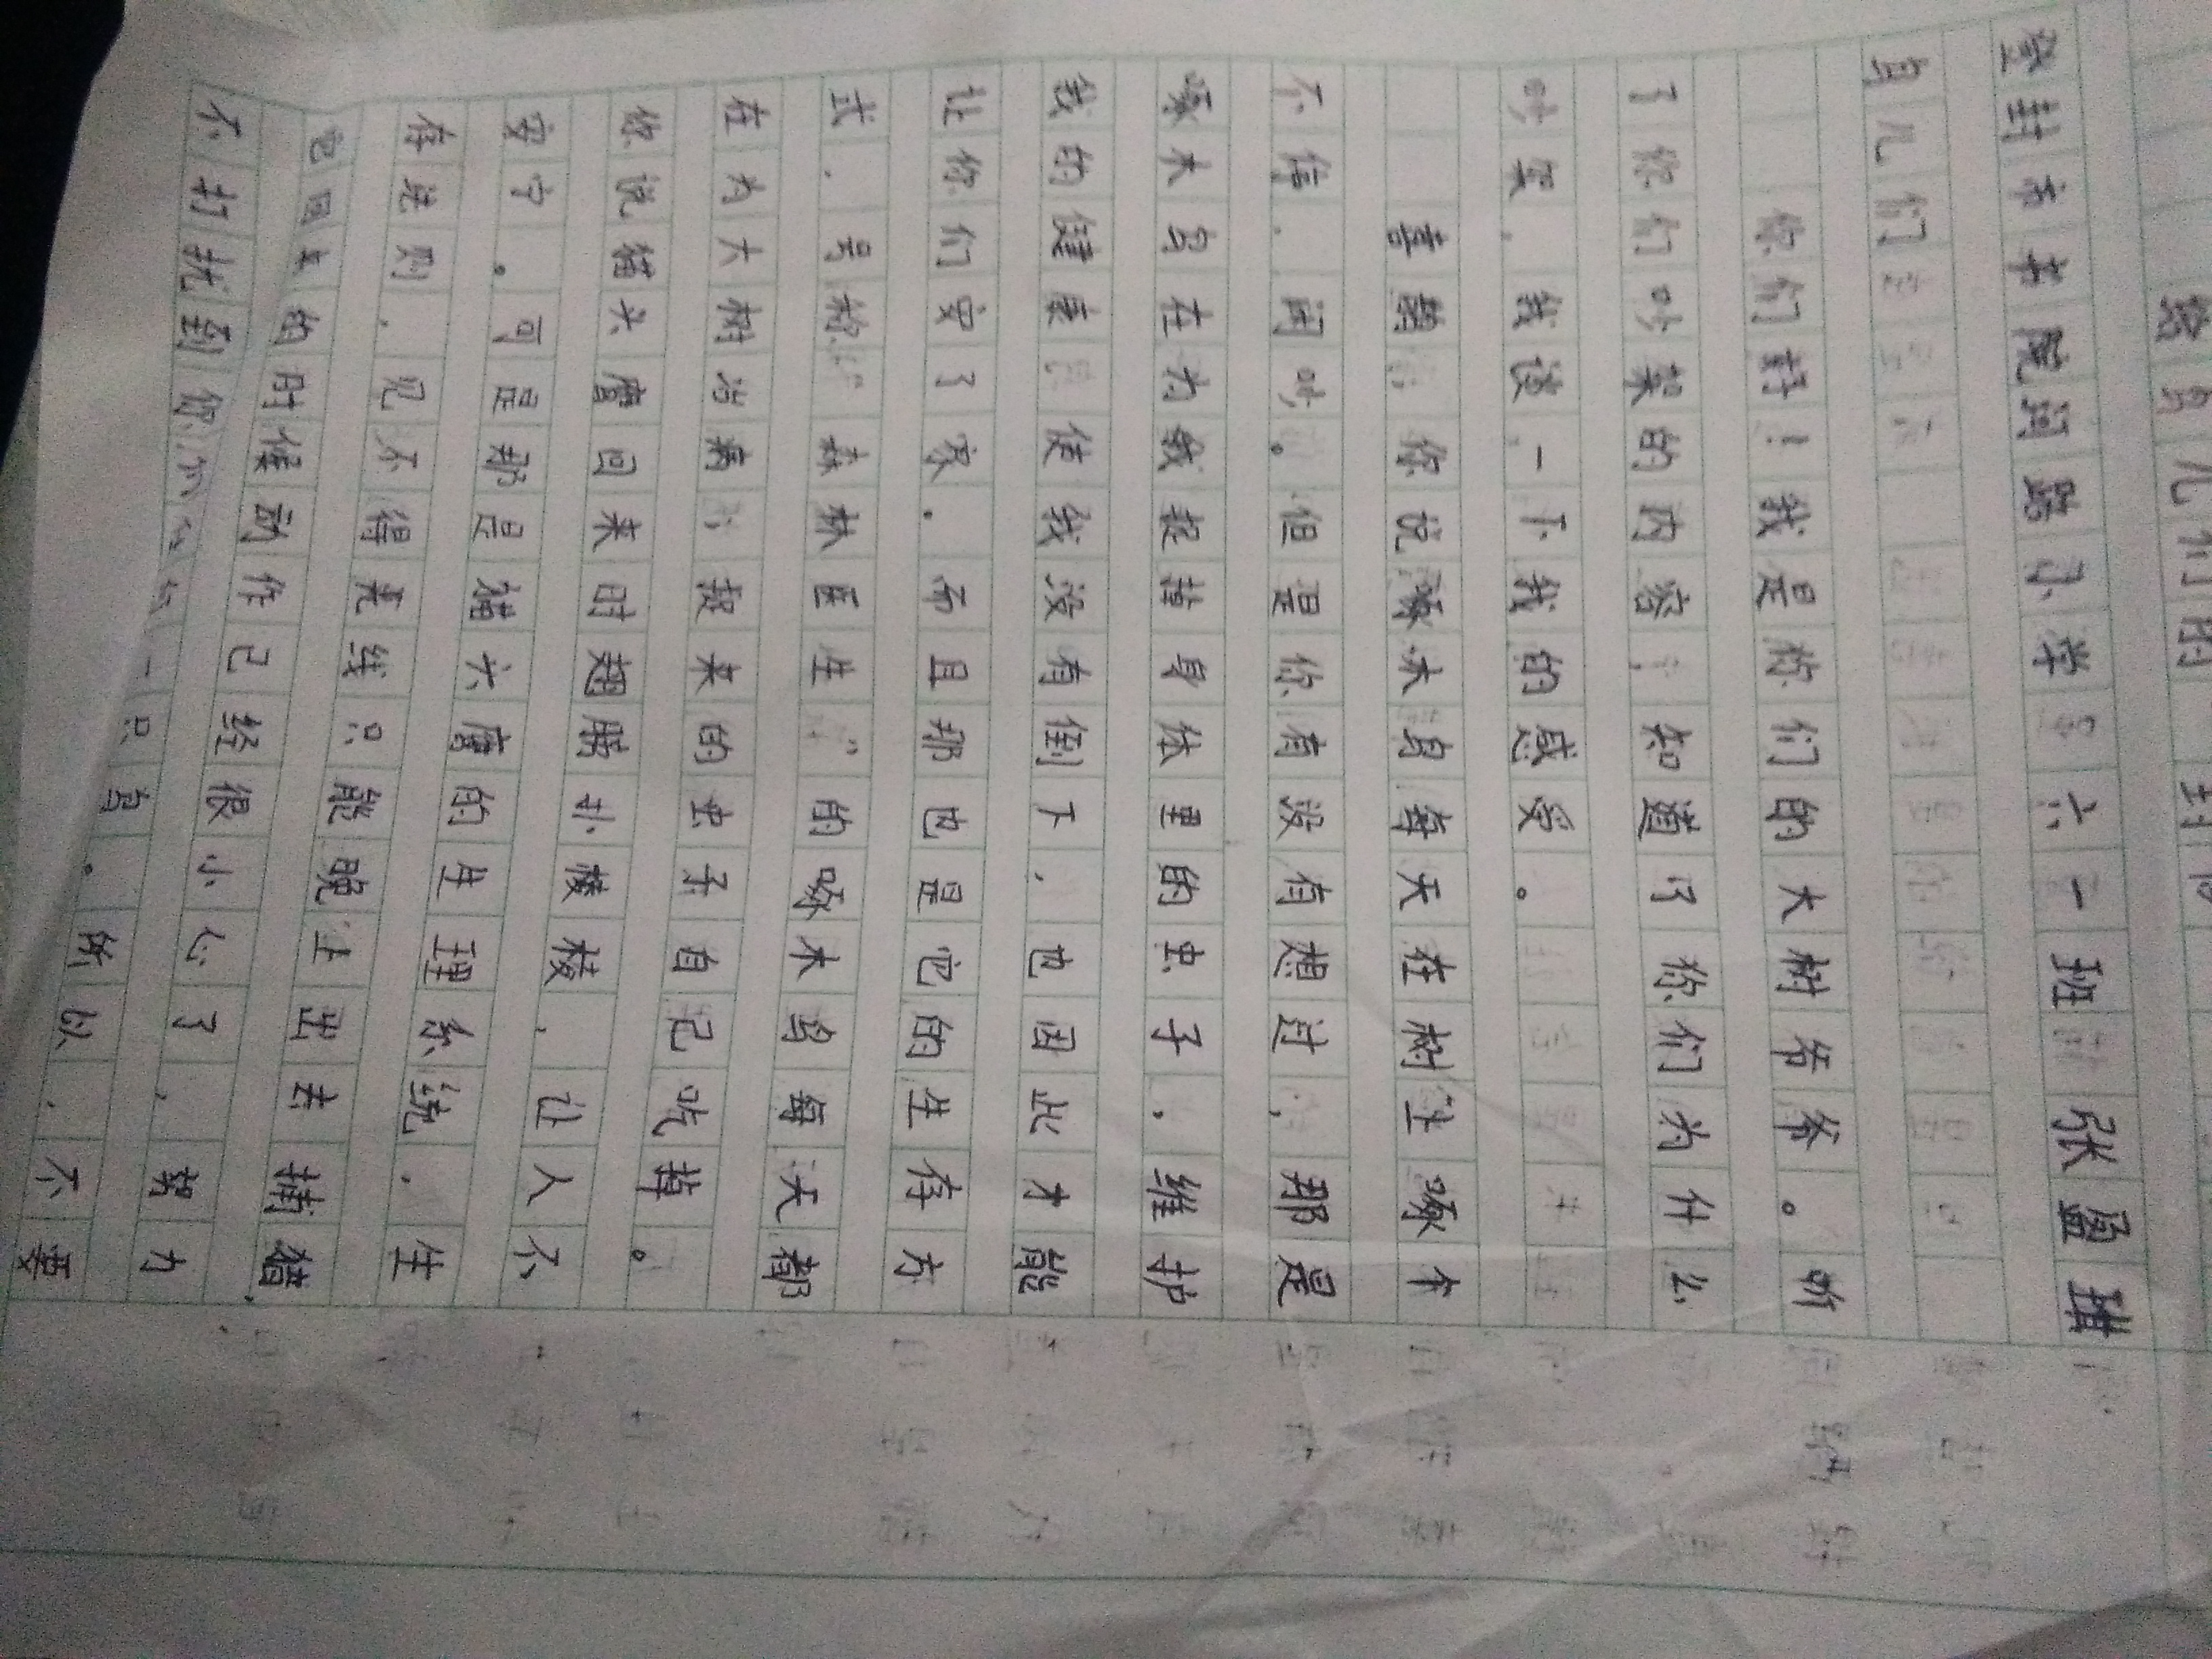 鸟儿们的一封信
登封市书院河路小学 六一班 张盈琪
鸟儿们：
你们好！我是你们的大树爷爷。听
了你们吵架的内容，知道了你们为什么
吵架，我谈一下我的感受。
喜鹊，你说啄木鸟每天在树上啄个
不停，闹吵。但是你有没有想过，那是
啄木鸟在为我捉掉身体里的虫子，维护
我的健康，使我没有倒下，也因此才能
让你们安了家。而且那也是它的生存方
式，号称“森林医生”的啄木鸟每天都
在为大树治病，捉来的虫子自己吃掉。
你说猫头鹰回来时翅膀扑棱棱，让人不
安宁。可是那是猫头鹰的生理系统，生
存法则，见不得亮线只能晚上出去捕猎，
它回来的时候动作已经很小心了，努力
不打扰到你们一只鸟。所以，不要